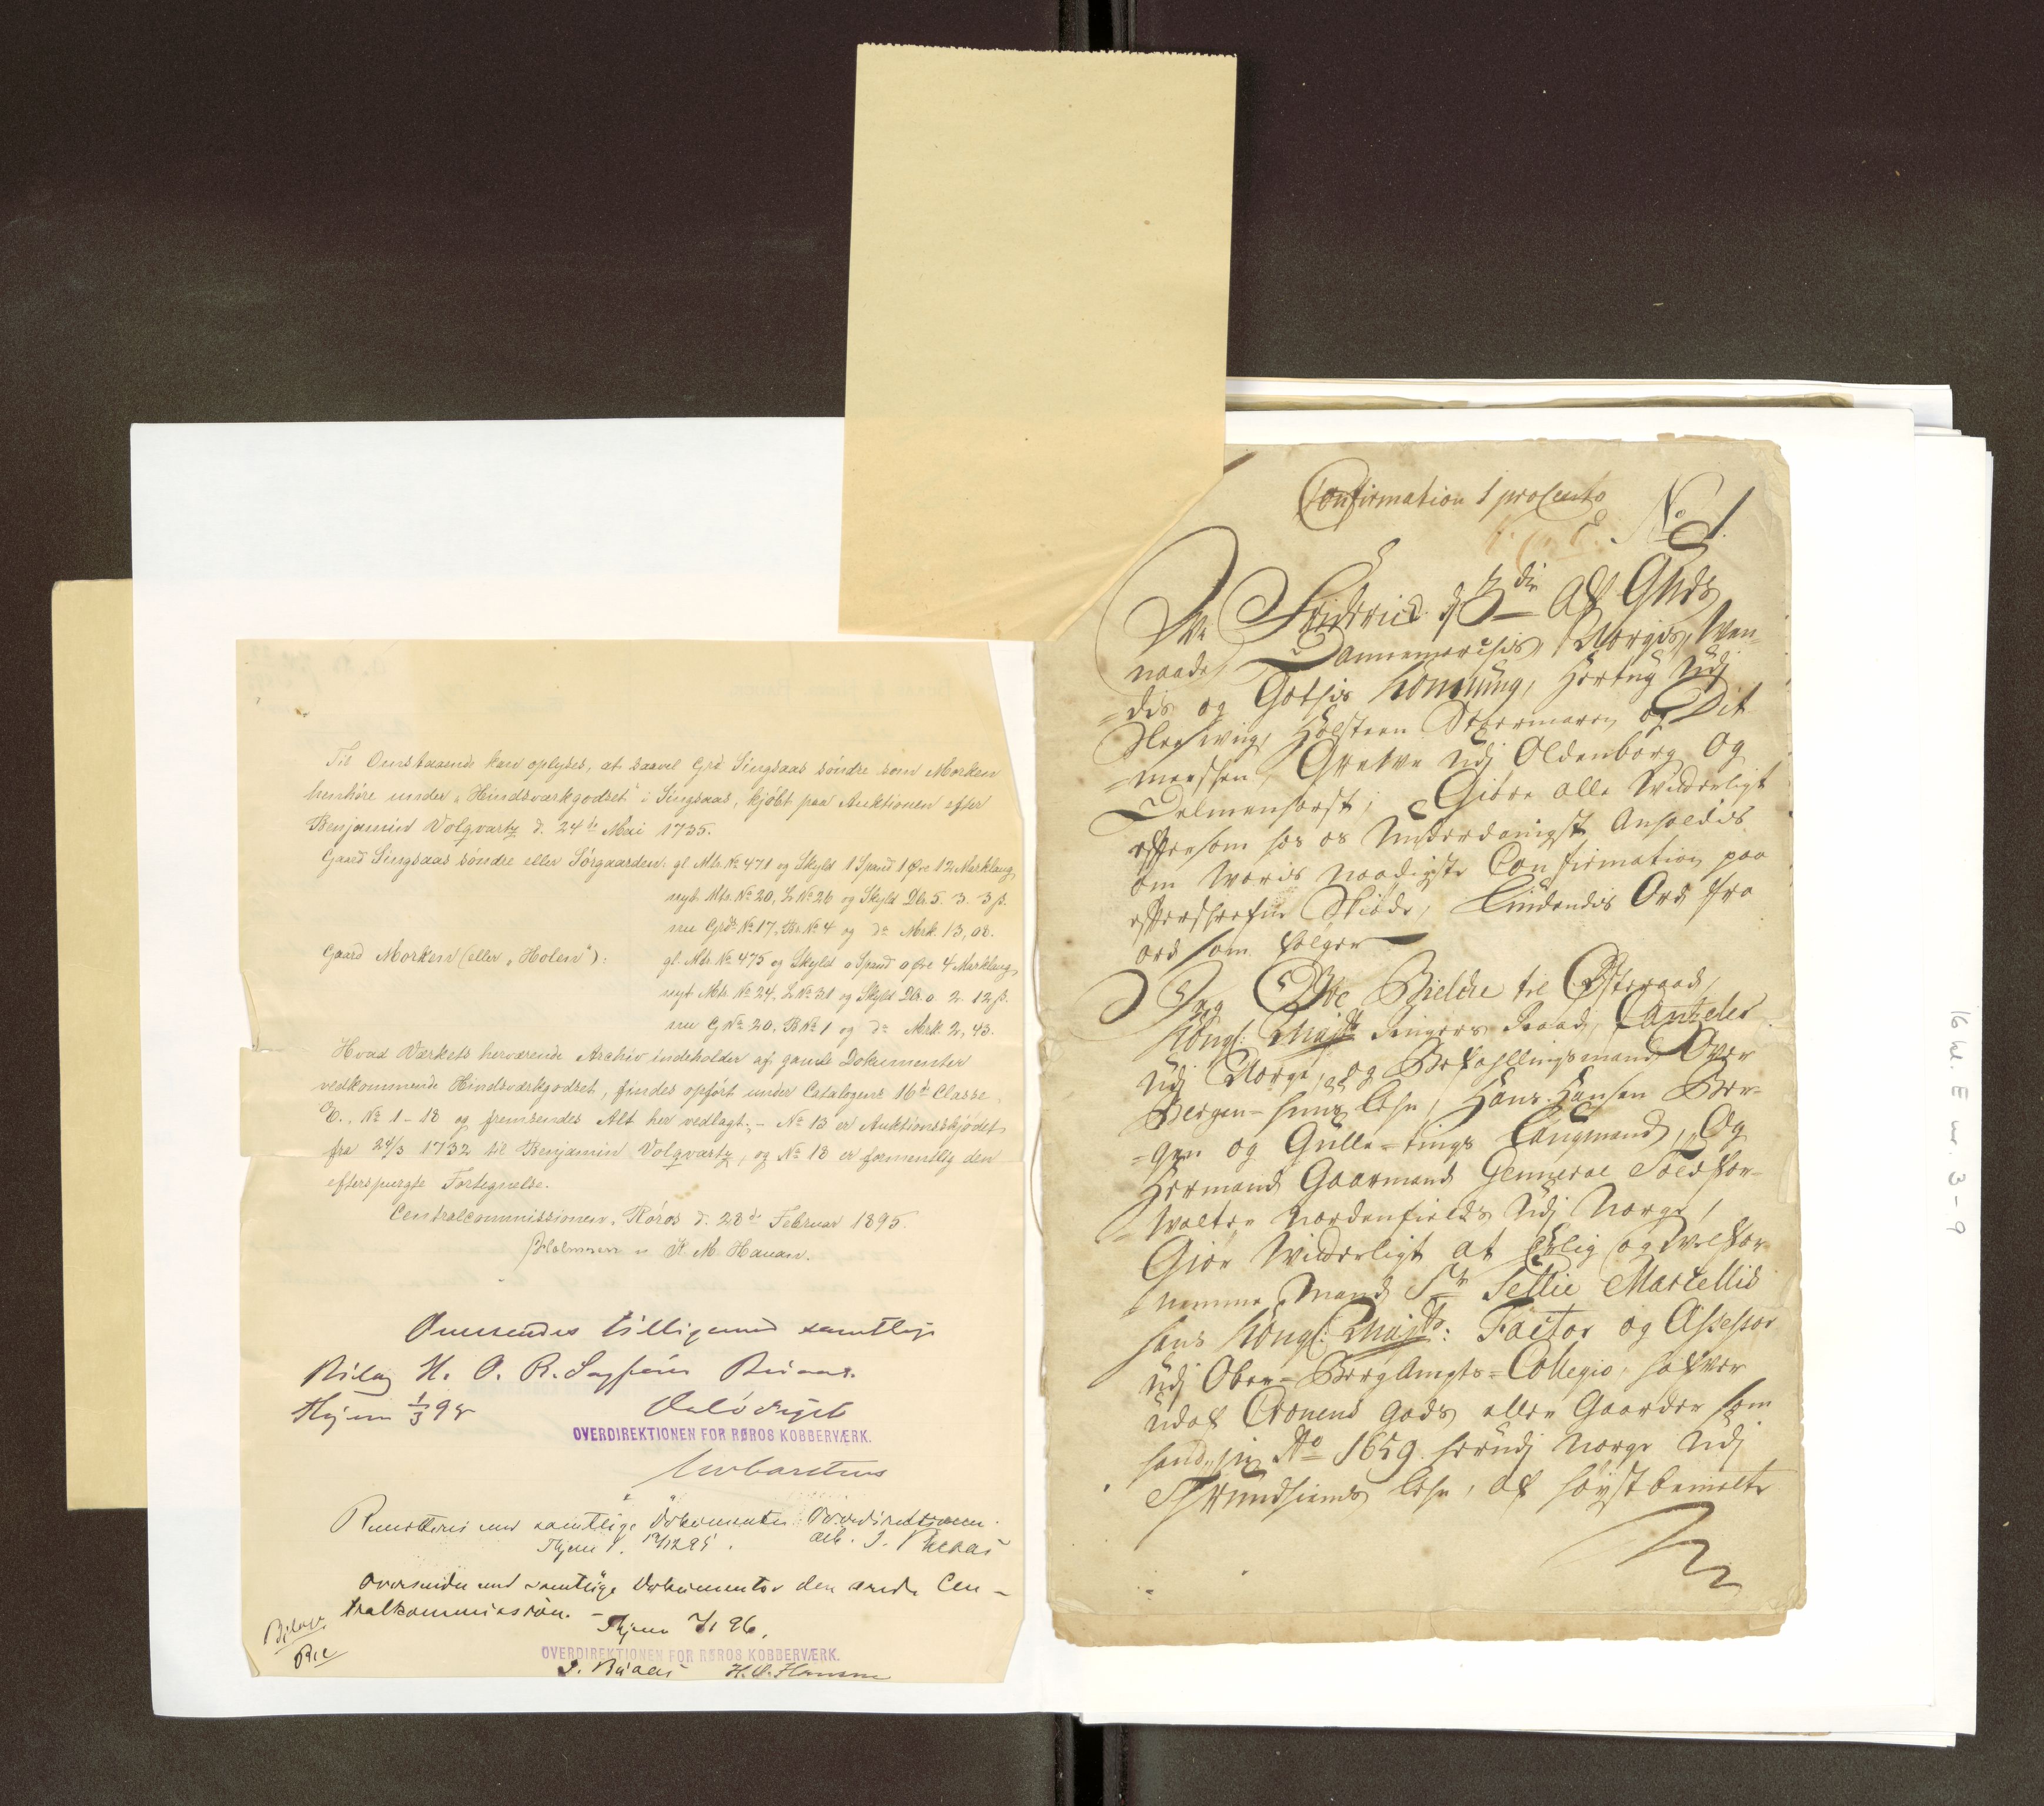 Til Omstaaende kan oplyses, at saavel Grd. Singsaas söndre som Morken
henhöre under "Hindsværkgodset" i Singsaas, kjöbt paa Auktionen efter
Benjamin Volqvartz d. 24de Mai 1735.
Gaard Singsaas söndre eller Sörgaarden: gl. Mtr. No 471 og Skyld 1 Spand 1 Øre 12 Marklaug
nyt Mtr. No 20, L No 26 og Skyld Dlr. 5. 3. 3 ß.
nu Grd. No 17, Br. No 4 og do Mrk. 13,08.
Gaard Morken (eller "Holen"): gl. Mtr. No 475 og Skyld 0 Spand 0 Øre 4 Marklaug
nyt Mtr. No 24, L No 31 og Skyld Dlr. 0. 2. 12 ß.
nu G No 20, B No 1 og do Mrk. 2,43.
Hvad Værkets herværende Archiv indeholder af gamle Dokumenter
vedkommende Hindsværkgodset, findes opfört under Catalogens 16de Classe
E., No 1-18 og fremsendes Alt her vedlagt; - No 13 er Auktionsskjödet
fra 24/3 1732 til Benjamin Volqvartz, og No 18 er formentlig den
efterspurgte Fortegnelse.
Centralcommissionen, Röros d. 28de Februar 1895.
K. M. Hauan.
Oversendes tilligemed samtlige
Bilag H. O. R.
Thjem 1/3 95
OVERDIREKTIONEN FOR RØROS KOBBERVÆRK.
med samtlige Dokumenter Overdirektionen.
Thjem d.
Oversendes med samtlige Dokumenter den ærede Cen-
tralkommission. -
Thjem 96.
OVERDIREKTIONEN FOR RØROS KOBBERVÆRK.
Confirmation 1 pro Cento
E. No 1.
Vii Friderich d 3die Aff Guds
naade, Dannemarchis, Norgis, Wen-
=dis og Gothis Konning, Hertug Udj
Slesswiig, Holsteen Stoermaren og Dit
=mersschen, Greffve udj Oldenborg og
Delmenhorst; Giøre alle Witterligt
eftersom hos os Underdanigst Anholdis
om Woris naadigste Confirmation paa
efterschrefne Skiøde, Liudendis Ord fra
ord som følger
Jeg Ove Bielcke til Østeraad,
Kongl: Maytts Raad, Cantzeler
Udj Norge, og Befahlingsmand Over
Bergen-huus Lehn, Hans Hansen Ber-
=gen og Gulle-tings Laugmand, Og
Hermand Gaarmand General Toldfor-
=walter Nordenfields Udj Norge,
Giør Witterligt at Erlig og Welfor-
nemme Mand Sr Sellie Marcellis
hans Kongl: Maytts: Factor og Assessor
udj Ober-BergAmpts-Collegio, hafver
udaf Cronens Gods eller Gaarder som
Ao 1659. herudj Norge udj
Thrundhiembs Lehn, af høystbemelte
16 kl. E nr. 3-9